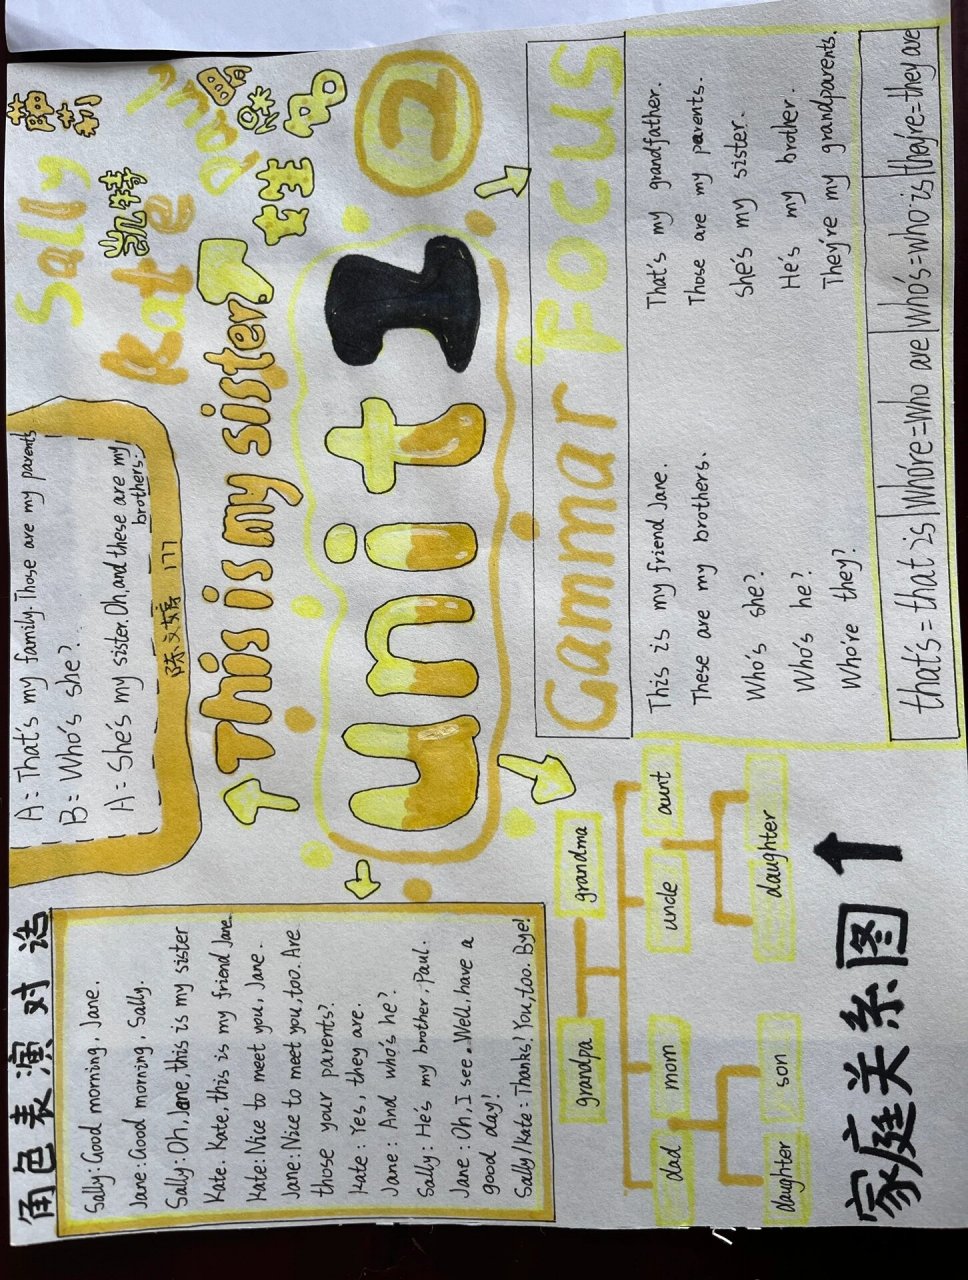 角色表演对话
Sally: Good morning, Jane.
Jane: Good morning, Sally.
Sally: Oh, Jane, this is my sister
Kate. Kate, this is my friend Jane.
Kate: Nice to meet you, Jane.
Jane: Nice to meet you, too. Are
those your parents?
Kate: Yes, they are.
Jane: And who's he?
Sally: He's my brother, Paul.
Jane: Oh, I see. Well, have a
good day!
Sally/Kate: Thanks! You, too. Bye!
A: That's my family. Those are my parents
B: Who's she?
A: She's my sister. Oh, and these are my
brothers.
177
Sally
凯特
Kate
Paul
女生
This is my sister.
unit 2
grandpa
grandma
dad
mom
uncle
aunt
daughter
son
daughter
家庭关系图
Gammar Focus
This is my friend Jane.
That's my grandfather.
These are my brothers.
Those are my parents.
Who's she?
She's my sister.
Who's he?
He's my brother.
Who're they?
They're my grandparents.
that's=that is
who're=who are
who's=who is
they're=they are